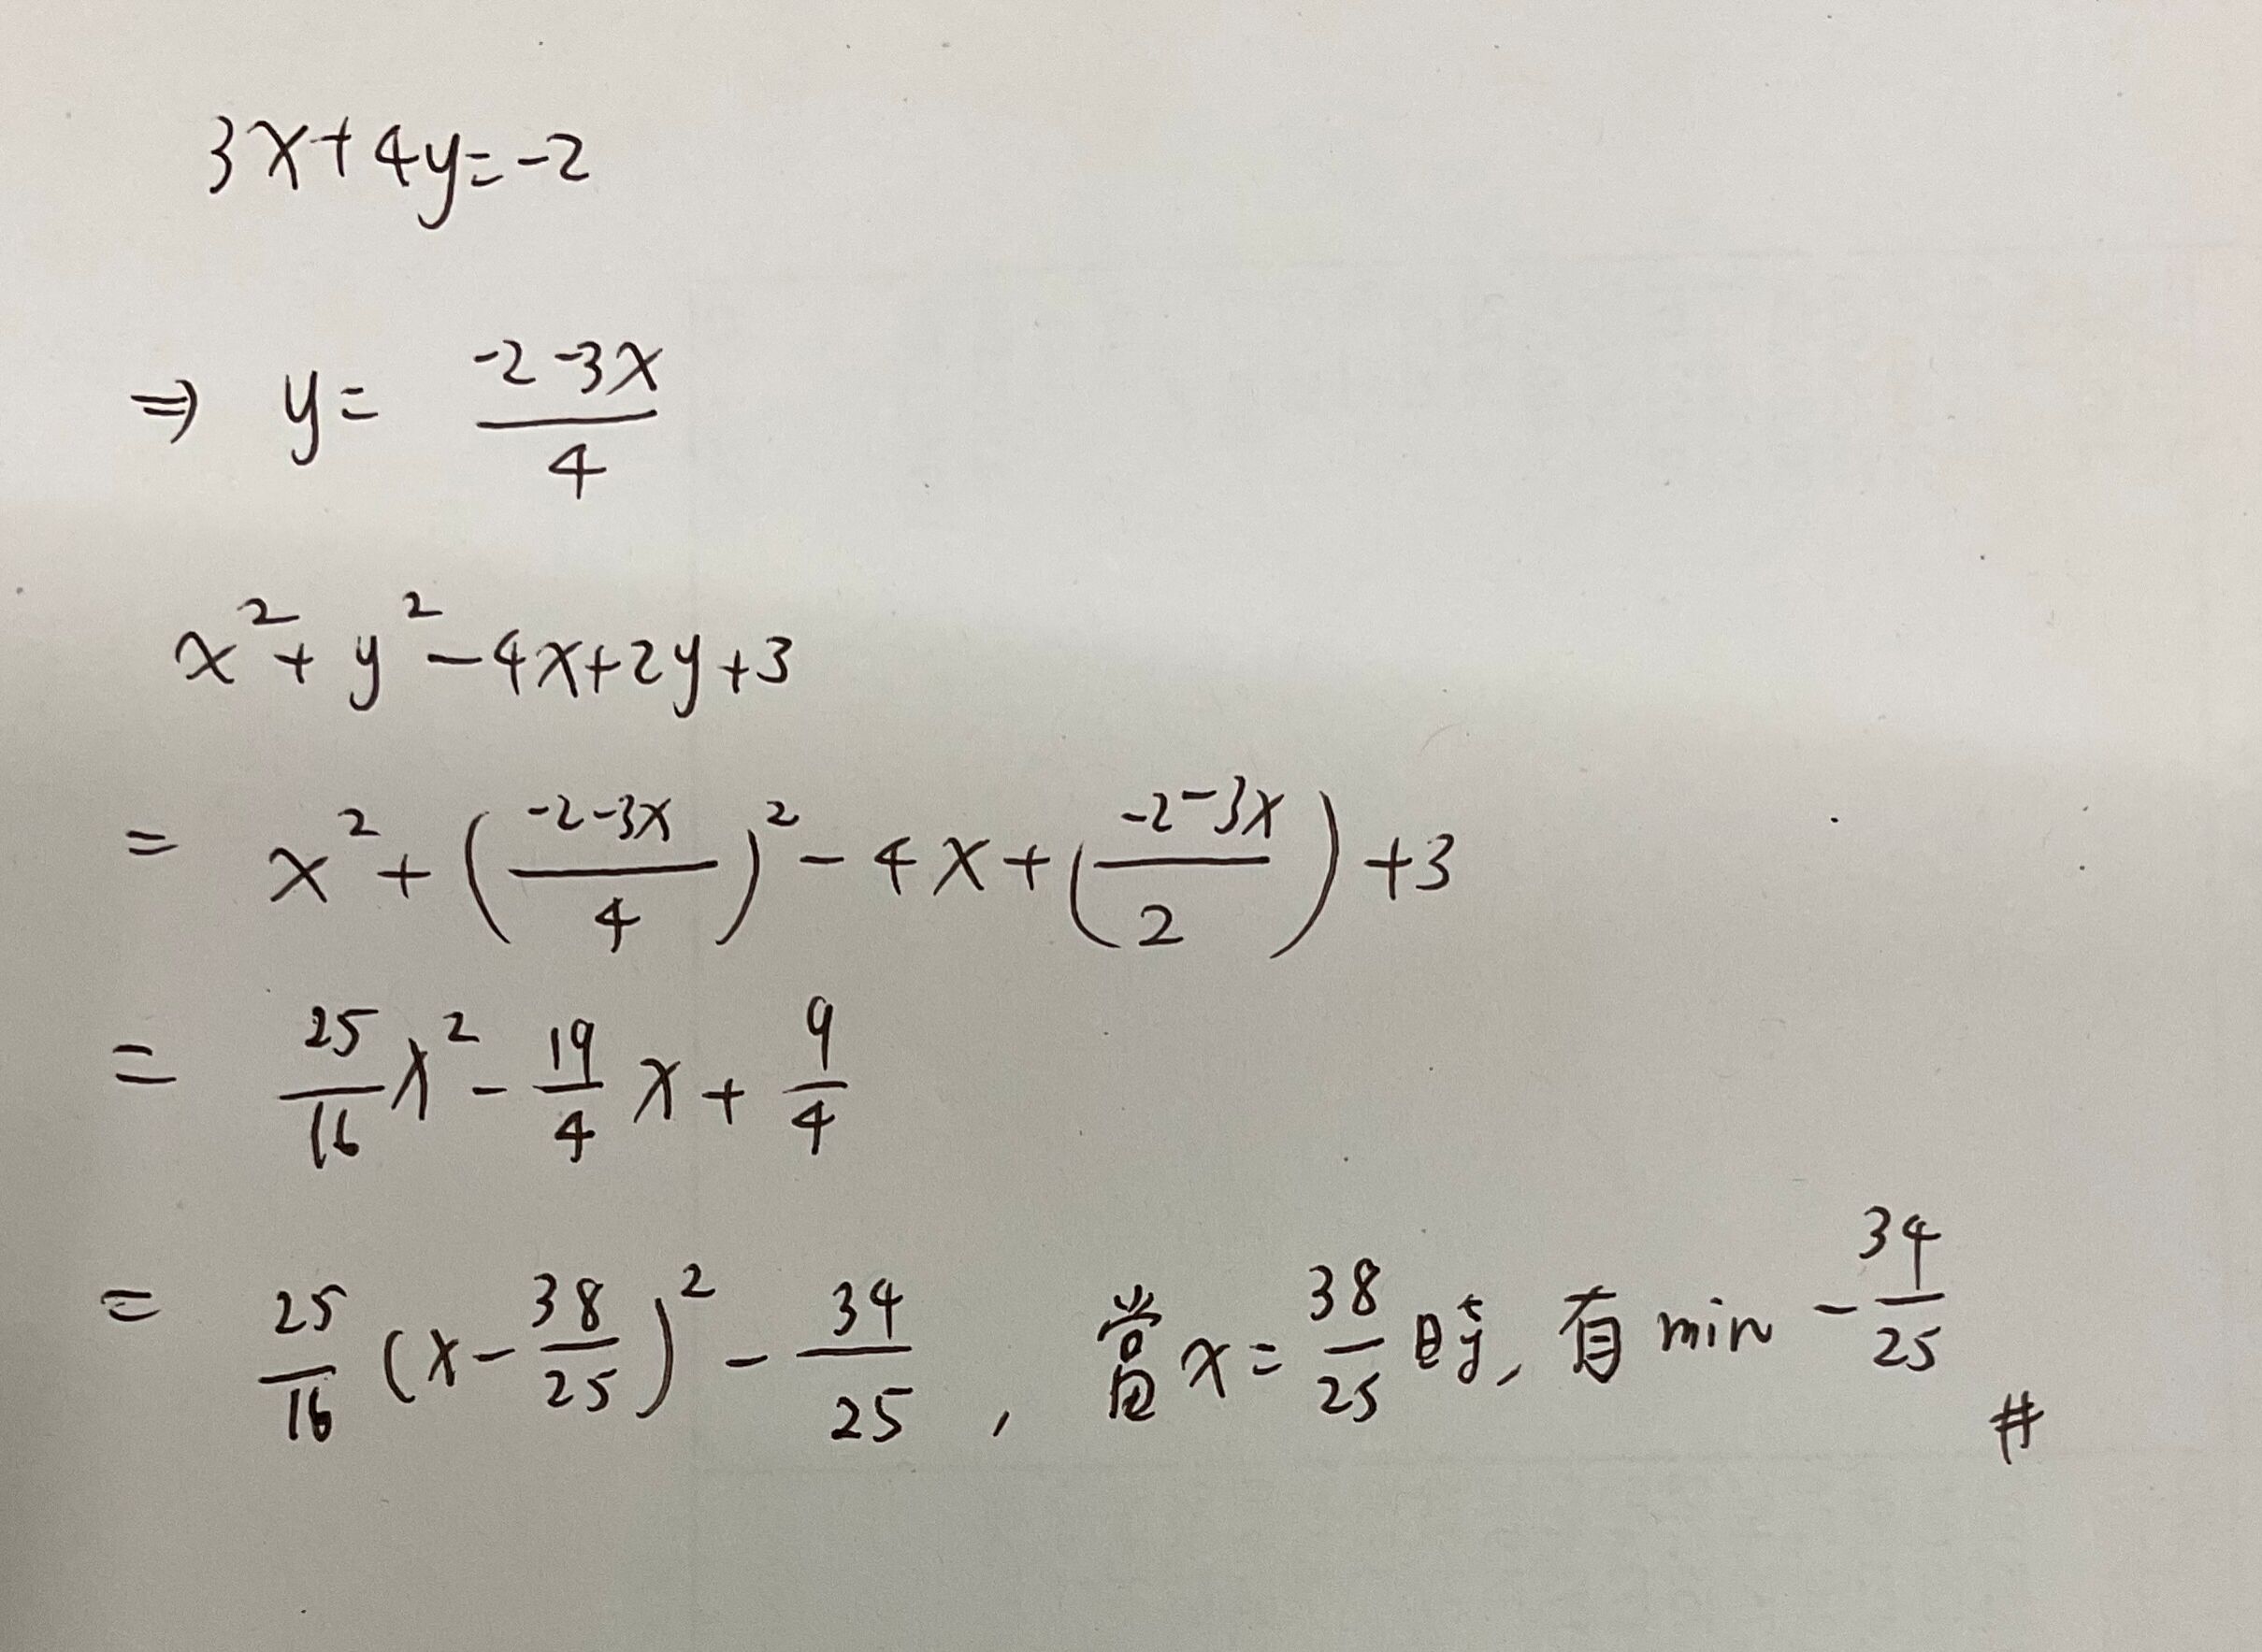 3x+4y=-2
⇒ y= \frac{-2-3x}{4}
x²+y²-4x+2y+3
= x²+(\frac{-2-3x}{4})²-4x+(\frac{-2-3x}{2})+3
= \frac{25}{16}x²-\frac{19}{4}x+\frac{9}{4}
= \frac{25}{16}(x-\frac{38}{25})²-\frac{34}{25}, 當x=\frac{38}{25}時, 有min -\frac{34}{25} #